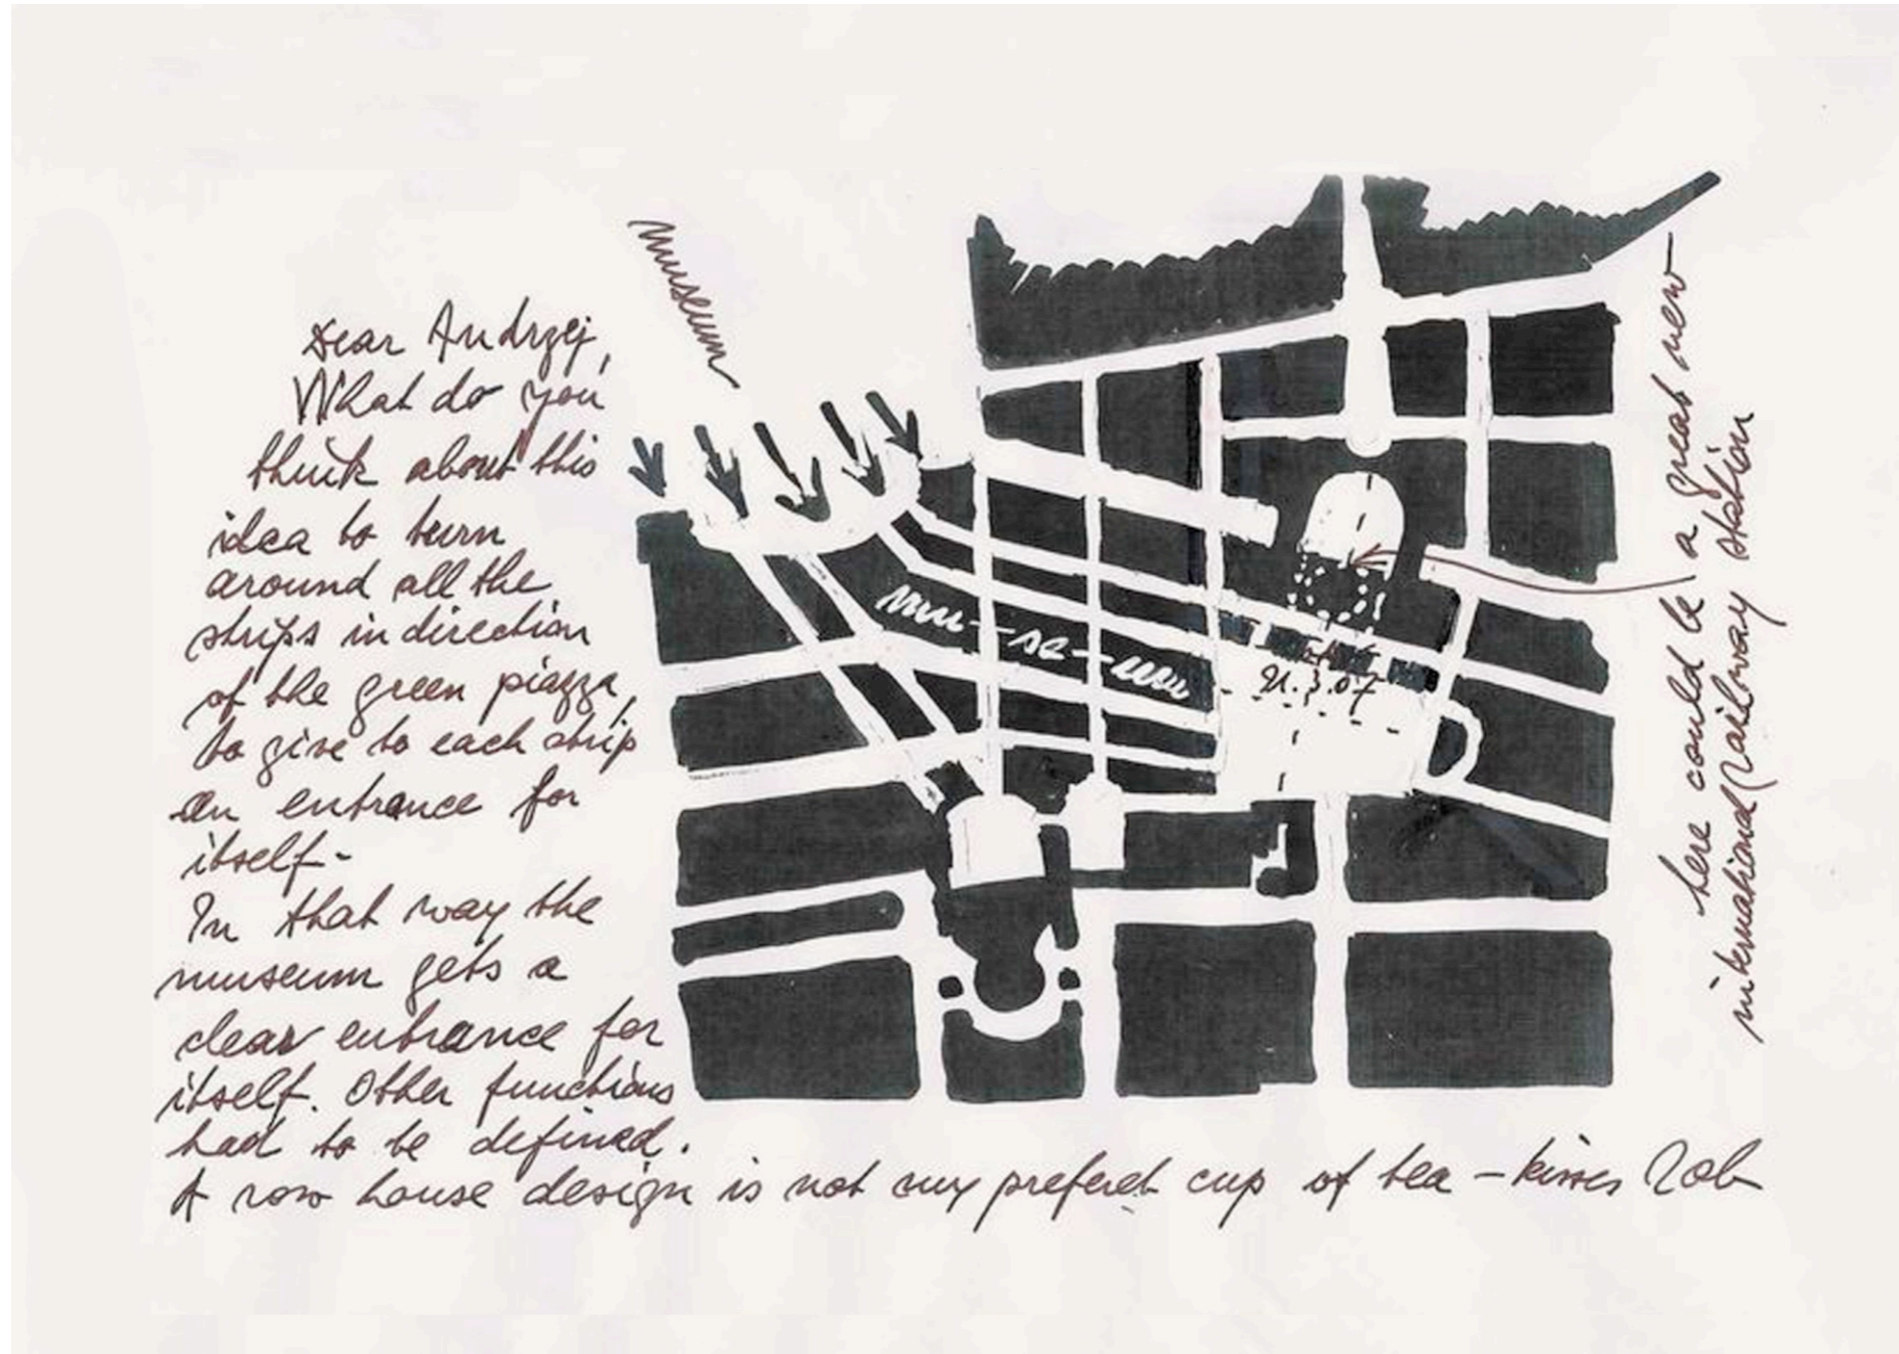 museum
Dear Andrzej,
What do you
think about this
idea to turn
around all the
strips in direction
of the green piazza,
to give to each strip
an entrance for
itself-
In that way the
museum gets a
clear entrance for
itself. Other functions
had to be defined.
A row house design is not my preferet cup of tea – kisses Rob
mu-se-um
21.3.07
here could be a great new
international railway station